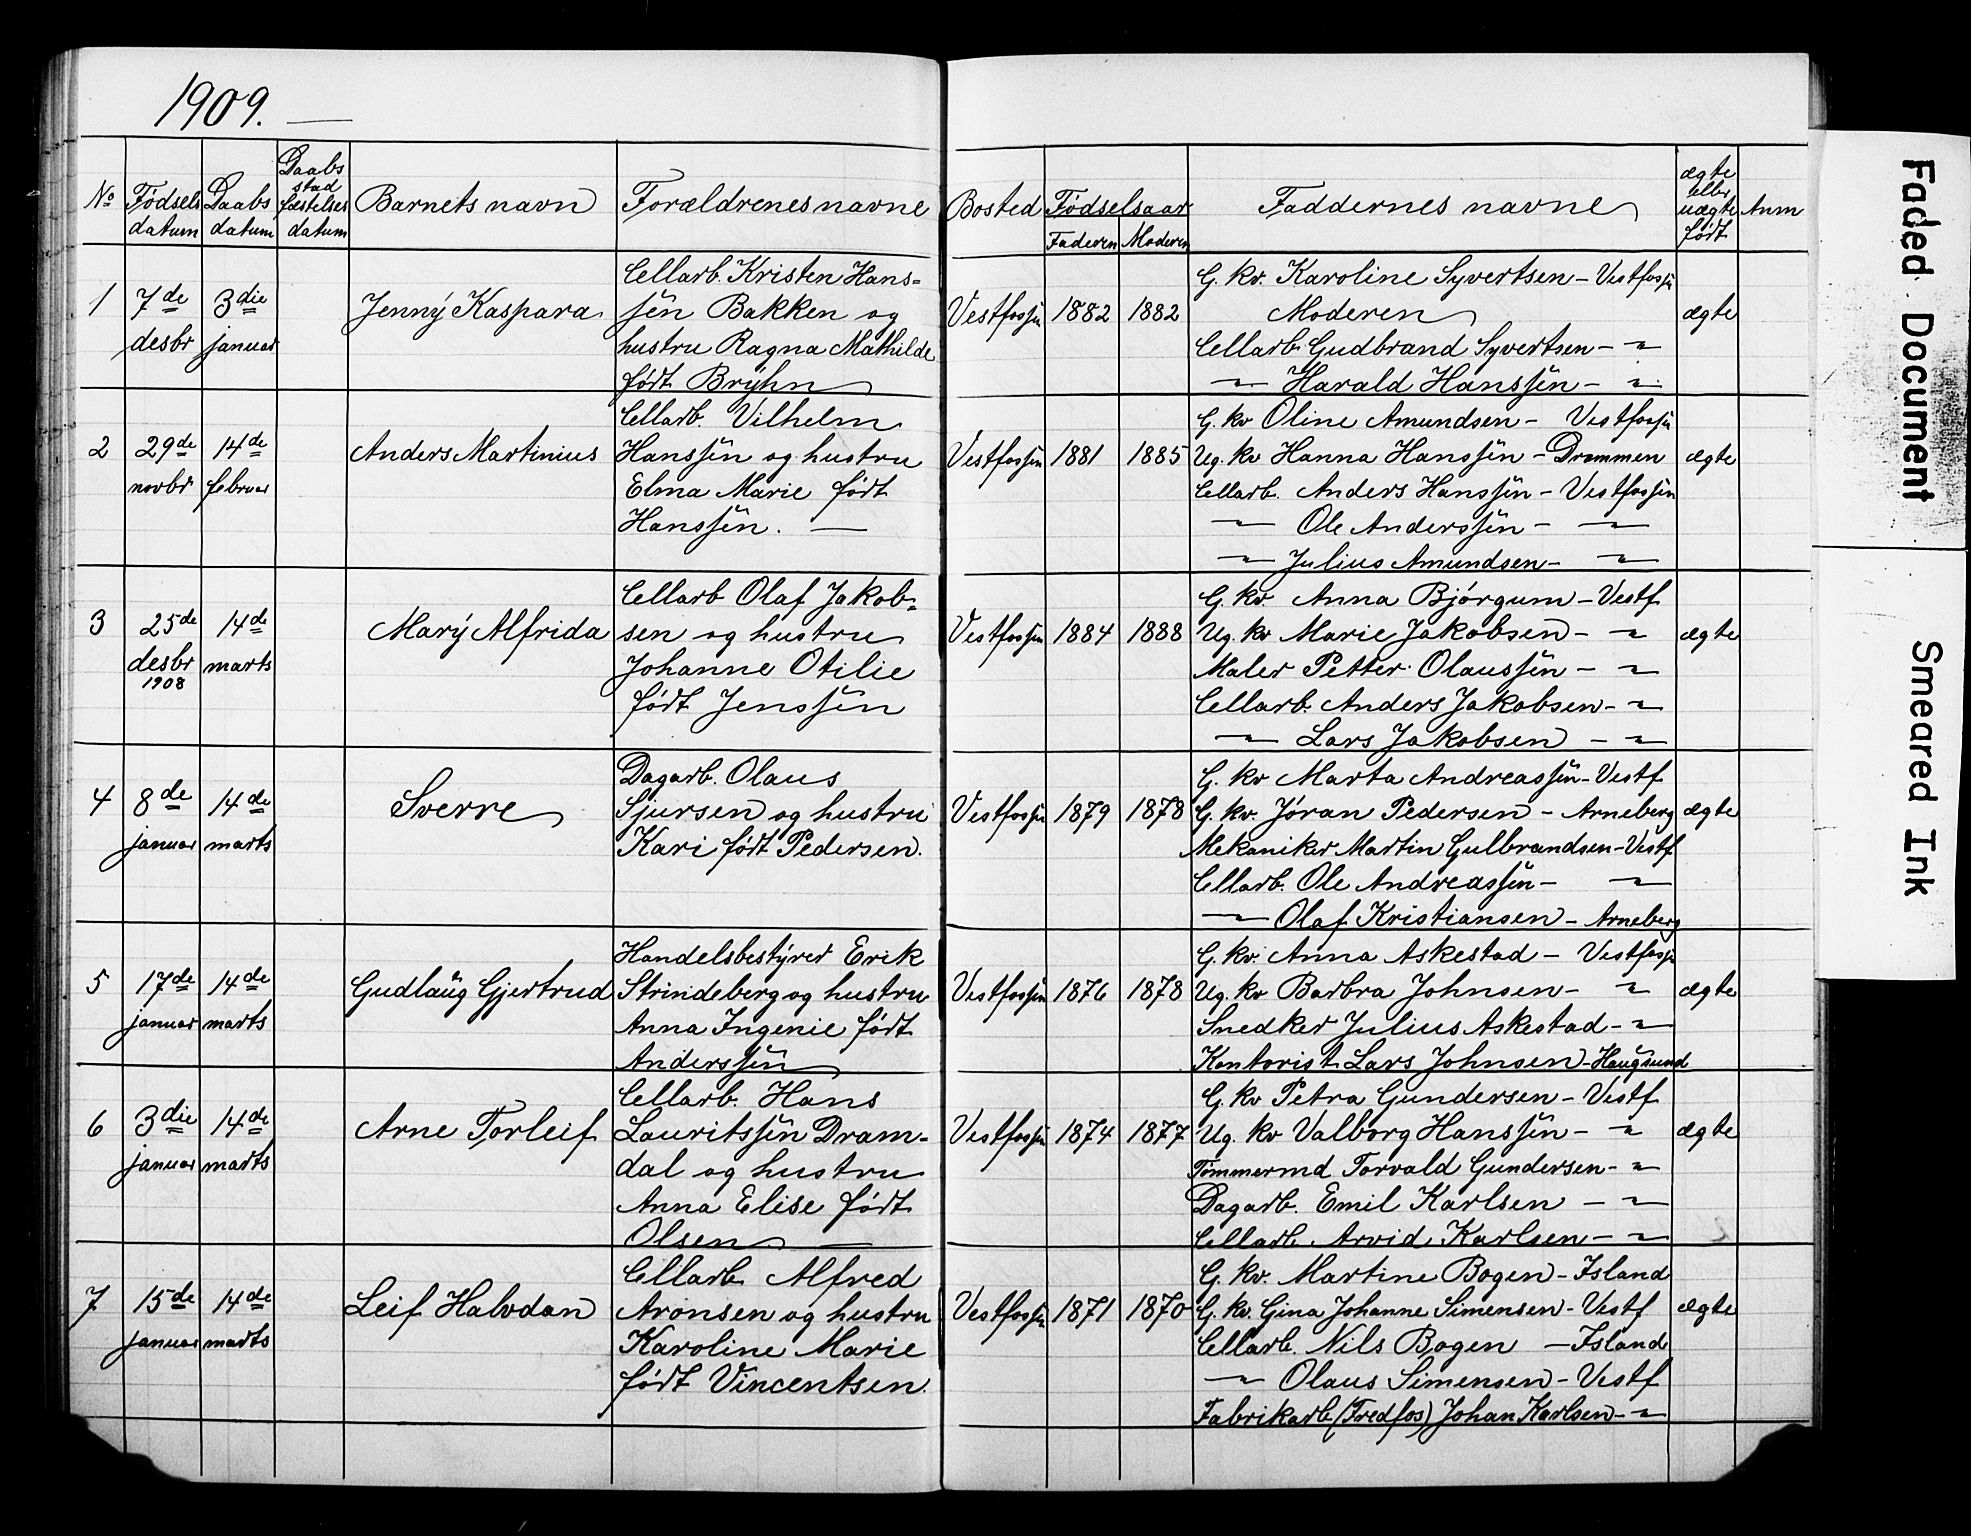 1909.
No
Fødsels
datum
Daabs
datum
Daabs
stad
fæstelses
datum
Barnets navn
Forældrenes navne
Bosted
Fødselsaar
Faderen
Moderen
Faddernes navne
ægte
eller
uægte
født
Anm
1
7de
desbr
3die
januar
Jenny Kaspara
Cellarb. Kristen Hans=
sen Bakken og
hustru Ragna Mathilde
født Bryhn
Vestfossen
1882
1882
G. kv. Karoline Syvertsen - Vestfossen
Moderen
Cellarb. Gudbrand Syvertsen - "
" Harald Hanssen - "
ægte
2
29de
novbr
14de
februar
Anders Martinius
Cellarb. Vilhelm
Hanssen og hustru
Elma Marie født
Hanssen. —
Vestfossen
1881
1885
G. kv Oline Amundsen - Vestfossen
Ug. kv Hanna Hanssen - Drammen
Cellarb. Anders Hanssen - Vestfossen
" Ole Anderssen - "
" Julius Amundsen - "
ægte
3
25de
desbr
1908
14de
marts
Mary Alfrida
Cellarb Olaf Jakob=
sen og hustru
Johanne Otilie
født Jenssen
Vestfossen
1884
1888
G. kv. Anna Bjørgum - Vestf
Ug. kv Marie Jakobsen - "
Maler Petter Olaussen - "
Cellarb. Anders Jakobsen - "
" Lars Jakobsen - "
ægte
4
8de
januar
14de
marts
Sverre
Dagarb. Olaus
Sjursen og hustru
Kari født Pedersen.
Vestfossen
1879
1878
G. kv Marta Andreassen - Vestf
G. kv. Jøran Pedersen - Arneberg
Mekaniker Martin Gulbrandsen - Vestf
Cellarb. Ole Andreassen - "
" Olaf Kristiansen - Arneberg
ægte
5
17de
januar
14de
marts
Gudlaug Gjertrud
Handelsbestyrer Erik
Strindeberg og hustru
Anna Ingenie født
Anderssen
Vestfossen
1876
1878
G. kv. Anna Askestad - Vestfossen
Ug. kv Barbra Johnsen - "
Snedker Julius Askestad - "
Kontorist Lars Johnsen - Haugsund
ægte
6
3die
januar
14de
marts
Arne Torleif
Cellarb. Hans
Lauritssen Dram-
dal og hustru
Anna Elise født
Olsen —
Vestfossen
1874
1877
G. kv Petra Gundersen - Vestf
Ug. kv Valborg Hanssen - "
Tømmermd Torvald Gundersen - "
Dagarb. Emil Karlsen - "
Cellarb. Arvid Karlsen - "
ægte
7
15de
januar
14de
marts
Leif Halvdan
Cellarb Alfred
Aronsen og hustru
Karoline Marie
født Vincentsen.
Vestfossen
1871
1870
G. kv. Martine Bogen - Island
G. kv. Gina Johanne Simensen - Vestf
Cellarb. Nils Bogen - Island
" Olaus Simensen - Vestf
Fabrikarb (Fredfos) Johan Karlsen - "
ægte
Faded Document
Smeared Ink